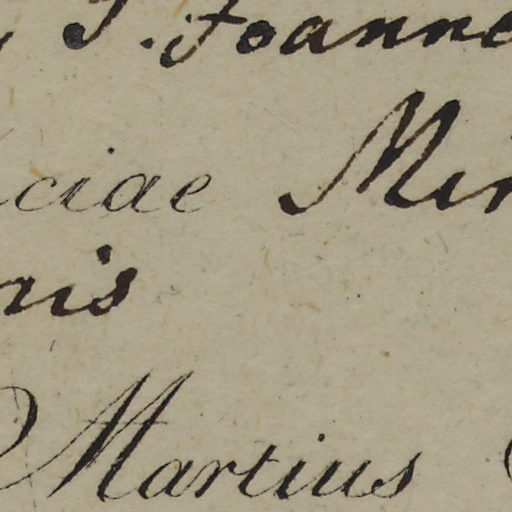 S. Joanne
ciae Min
nis
Martius